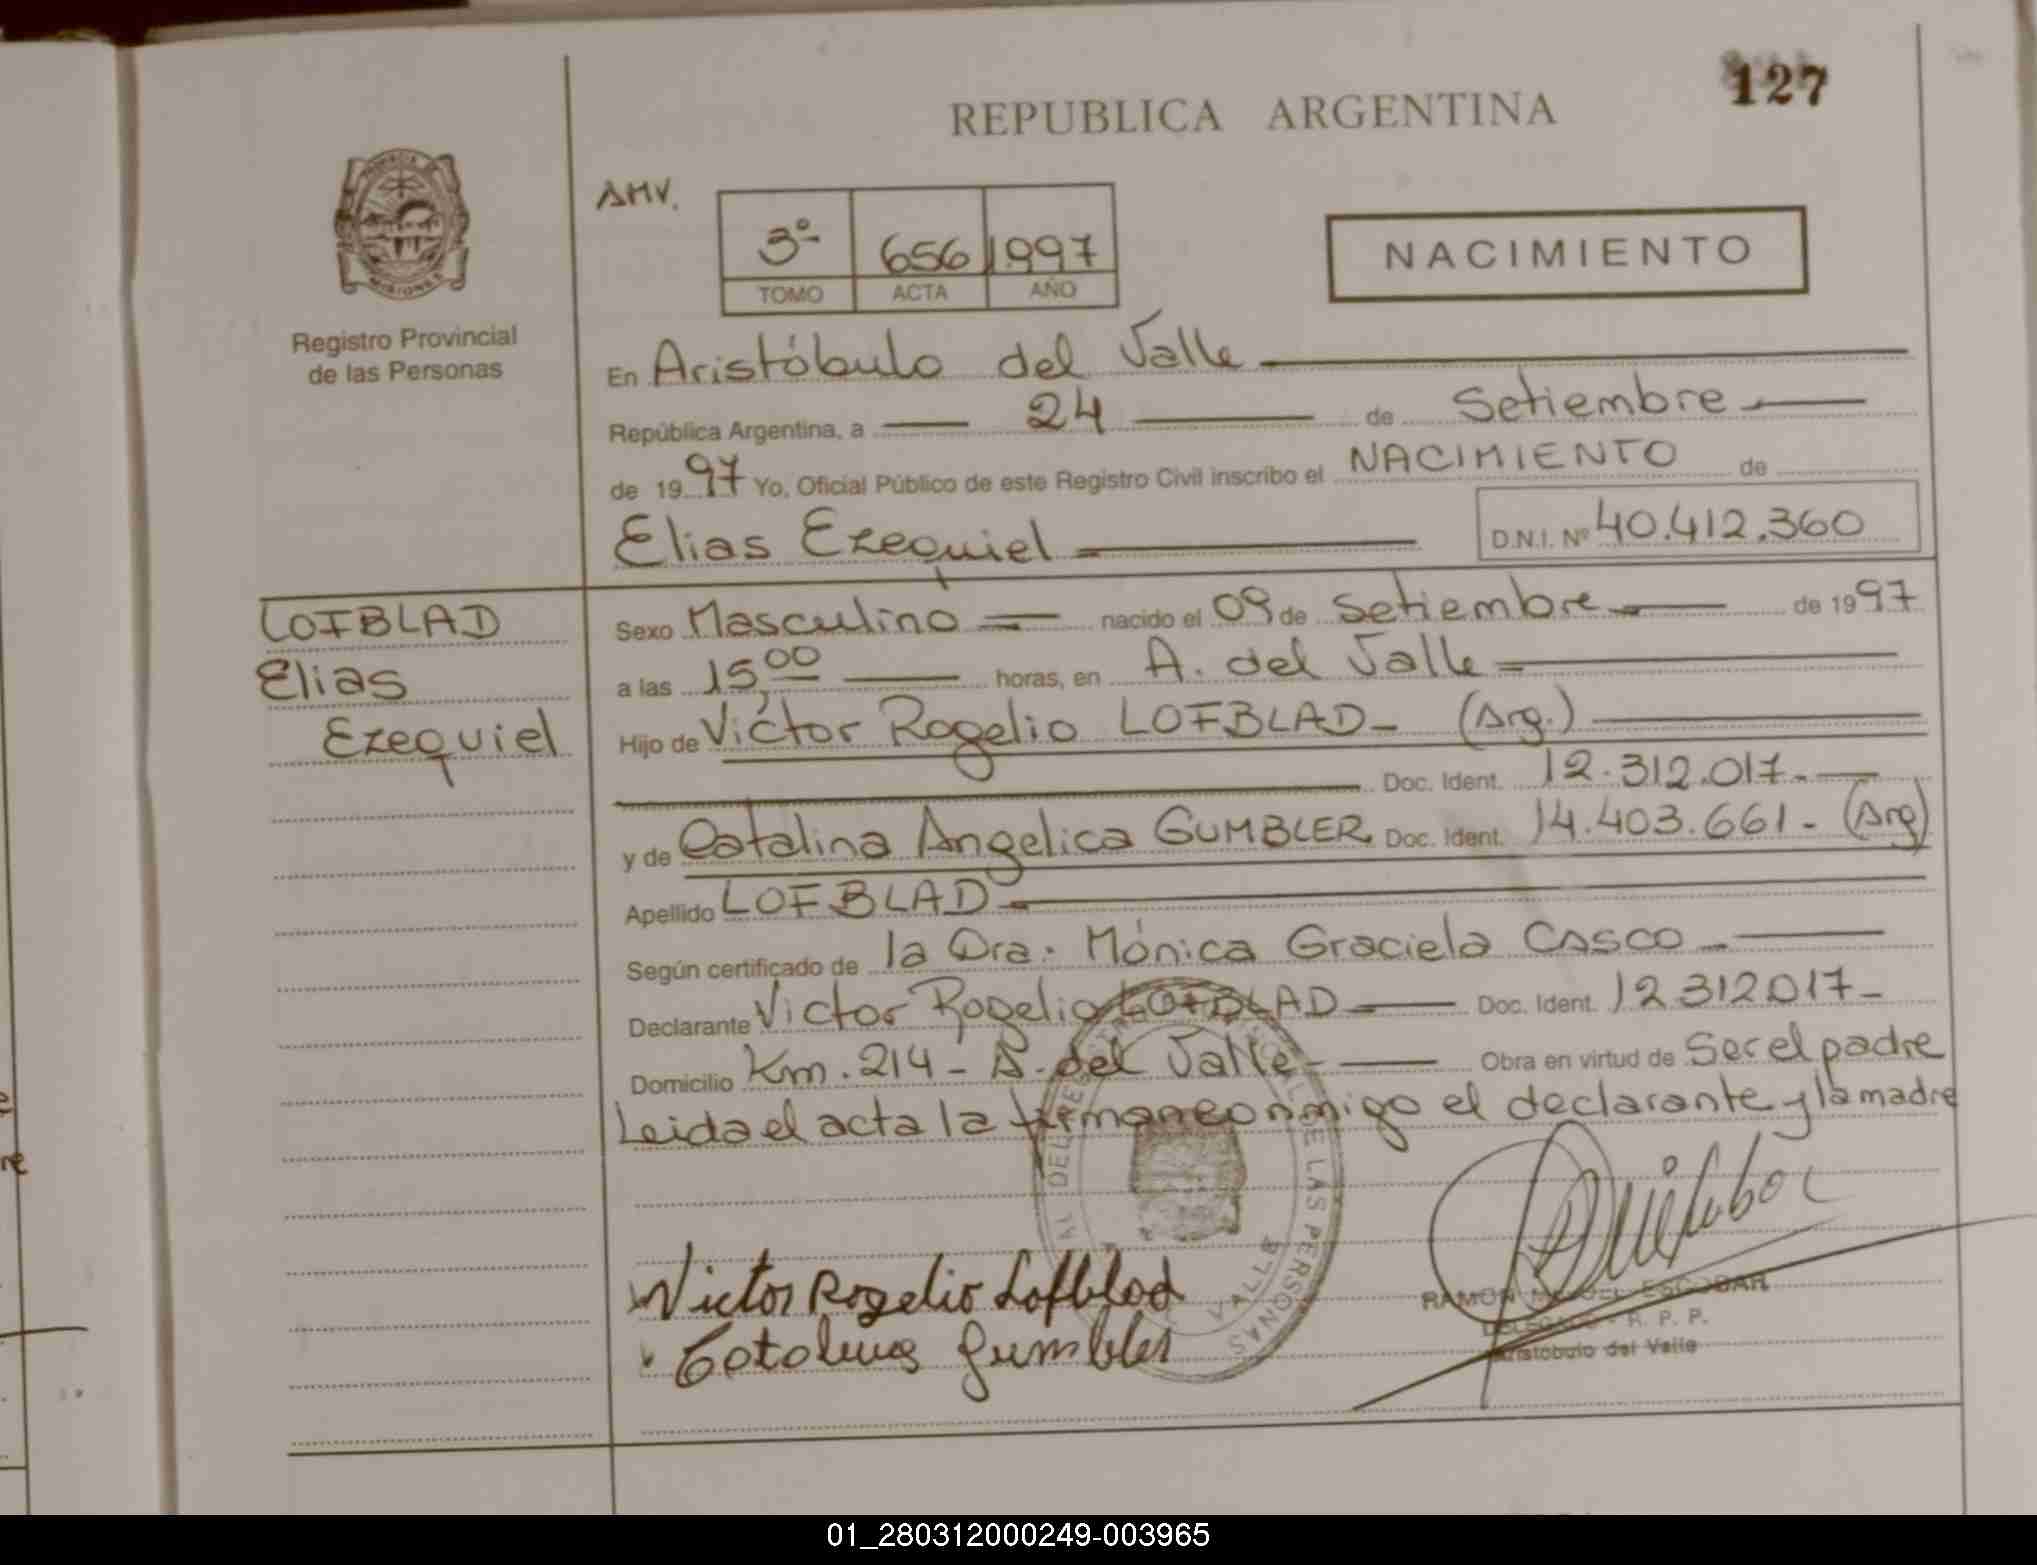 127
REPUBLICA ARGENTINA
PROVINCIA DE
MISIONES
Registro Provincial
de las Personas
AMV.
3º 656 1997
TOMO ACTA AÑO
NACIMIENTO
En Aristóbulo del Valle
República Argentina, a 24 de Setiembre
de 1997 Yo, Oficial Público de este Registro Civil inscribo el NACIMIENTO de
Elias Ezequiel D.N.I. Nº 40.412.360
LOFBLAD
Elias
Ezequiel
Sexo Masculino nacido el 09 de Setiembre de 1997
a las 15,00 horas, en A. del Valle
Hijo de Víctor Rogelio LOFBLAD- (Arg.)
Doc. Ident. 12.312.017.-
y de Catalina Angelica GUMBLER Doc. Ident. 14.403.661- (Arg)
Apellido LOFBLAD
Según certificado de la Dra. Mónica Graciela CASCO
Declarante Victor Rogelio LOFBLAD Doc. Ident. 12312017-
Domicilio Km. 214 - A. del Valle Obra en virtud de Ser el padre
Leida el acta la firman conmigo el declarante y la madre
Victor Rogelio Lofblad
Catalina Gumbler
DE LAS PERSONAS
VALLE
RAMON MIGUEL ESCOBAR
DELEGADO - R. P. P.
Aristobulo del Valle
01_280312000249-003965